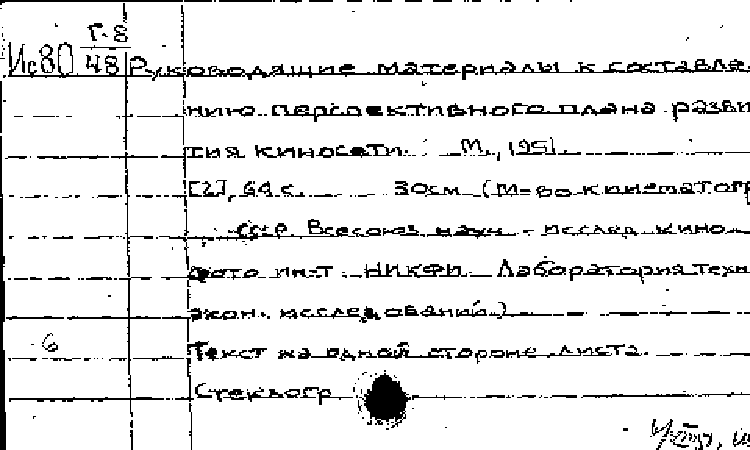 Г-8
Ис80 48 Руководящие материалы к составле
нию перспективного плана разви
тия киносети. М., 1951.
[2], 64 с. 30см (М-во кинематогр
ССР. Всесоюз. научн.-исслед. кино
фото ин-т. НИКФИ. Лаборатория техн
экон. исследований.)
6 Текст на одной стороне листа.
Стеклогр.